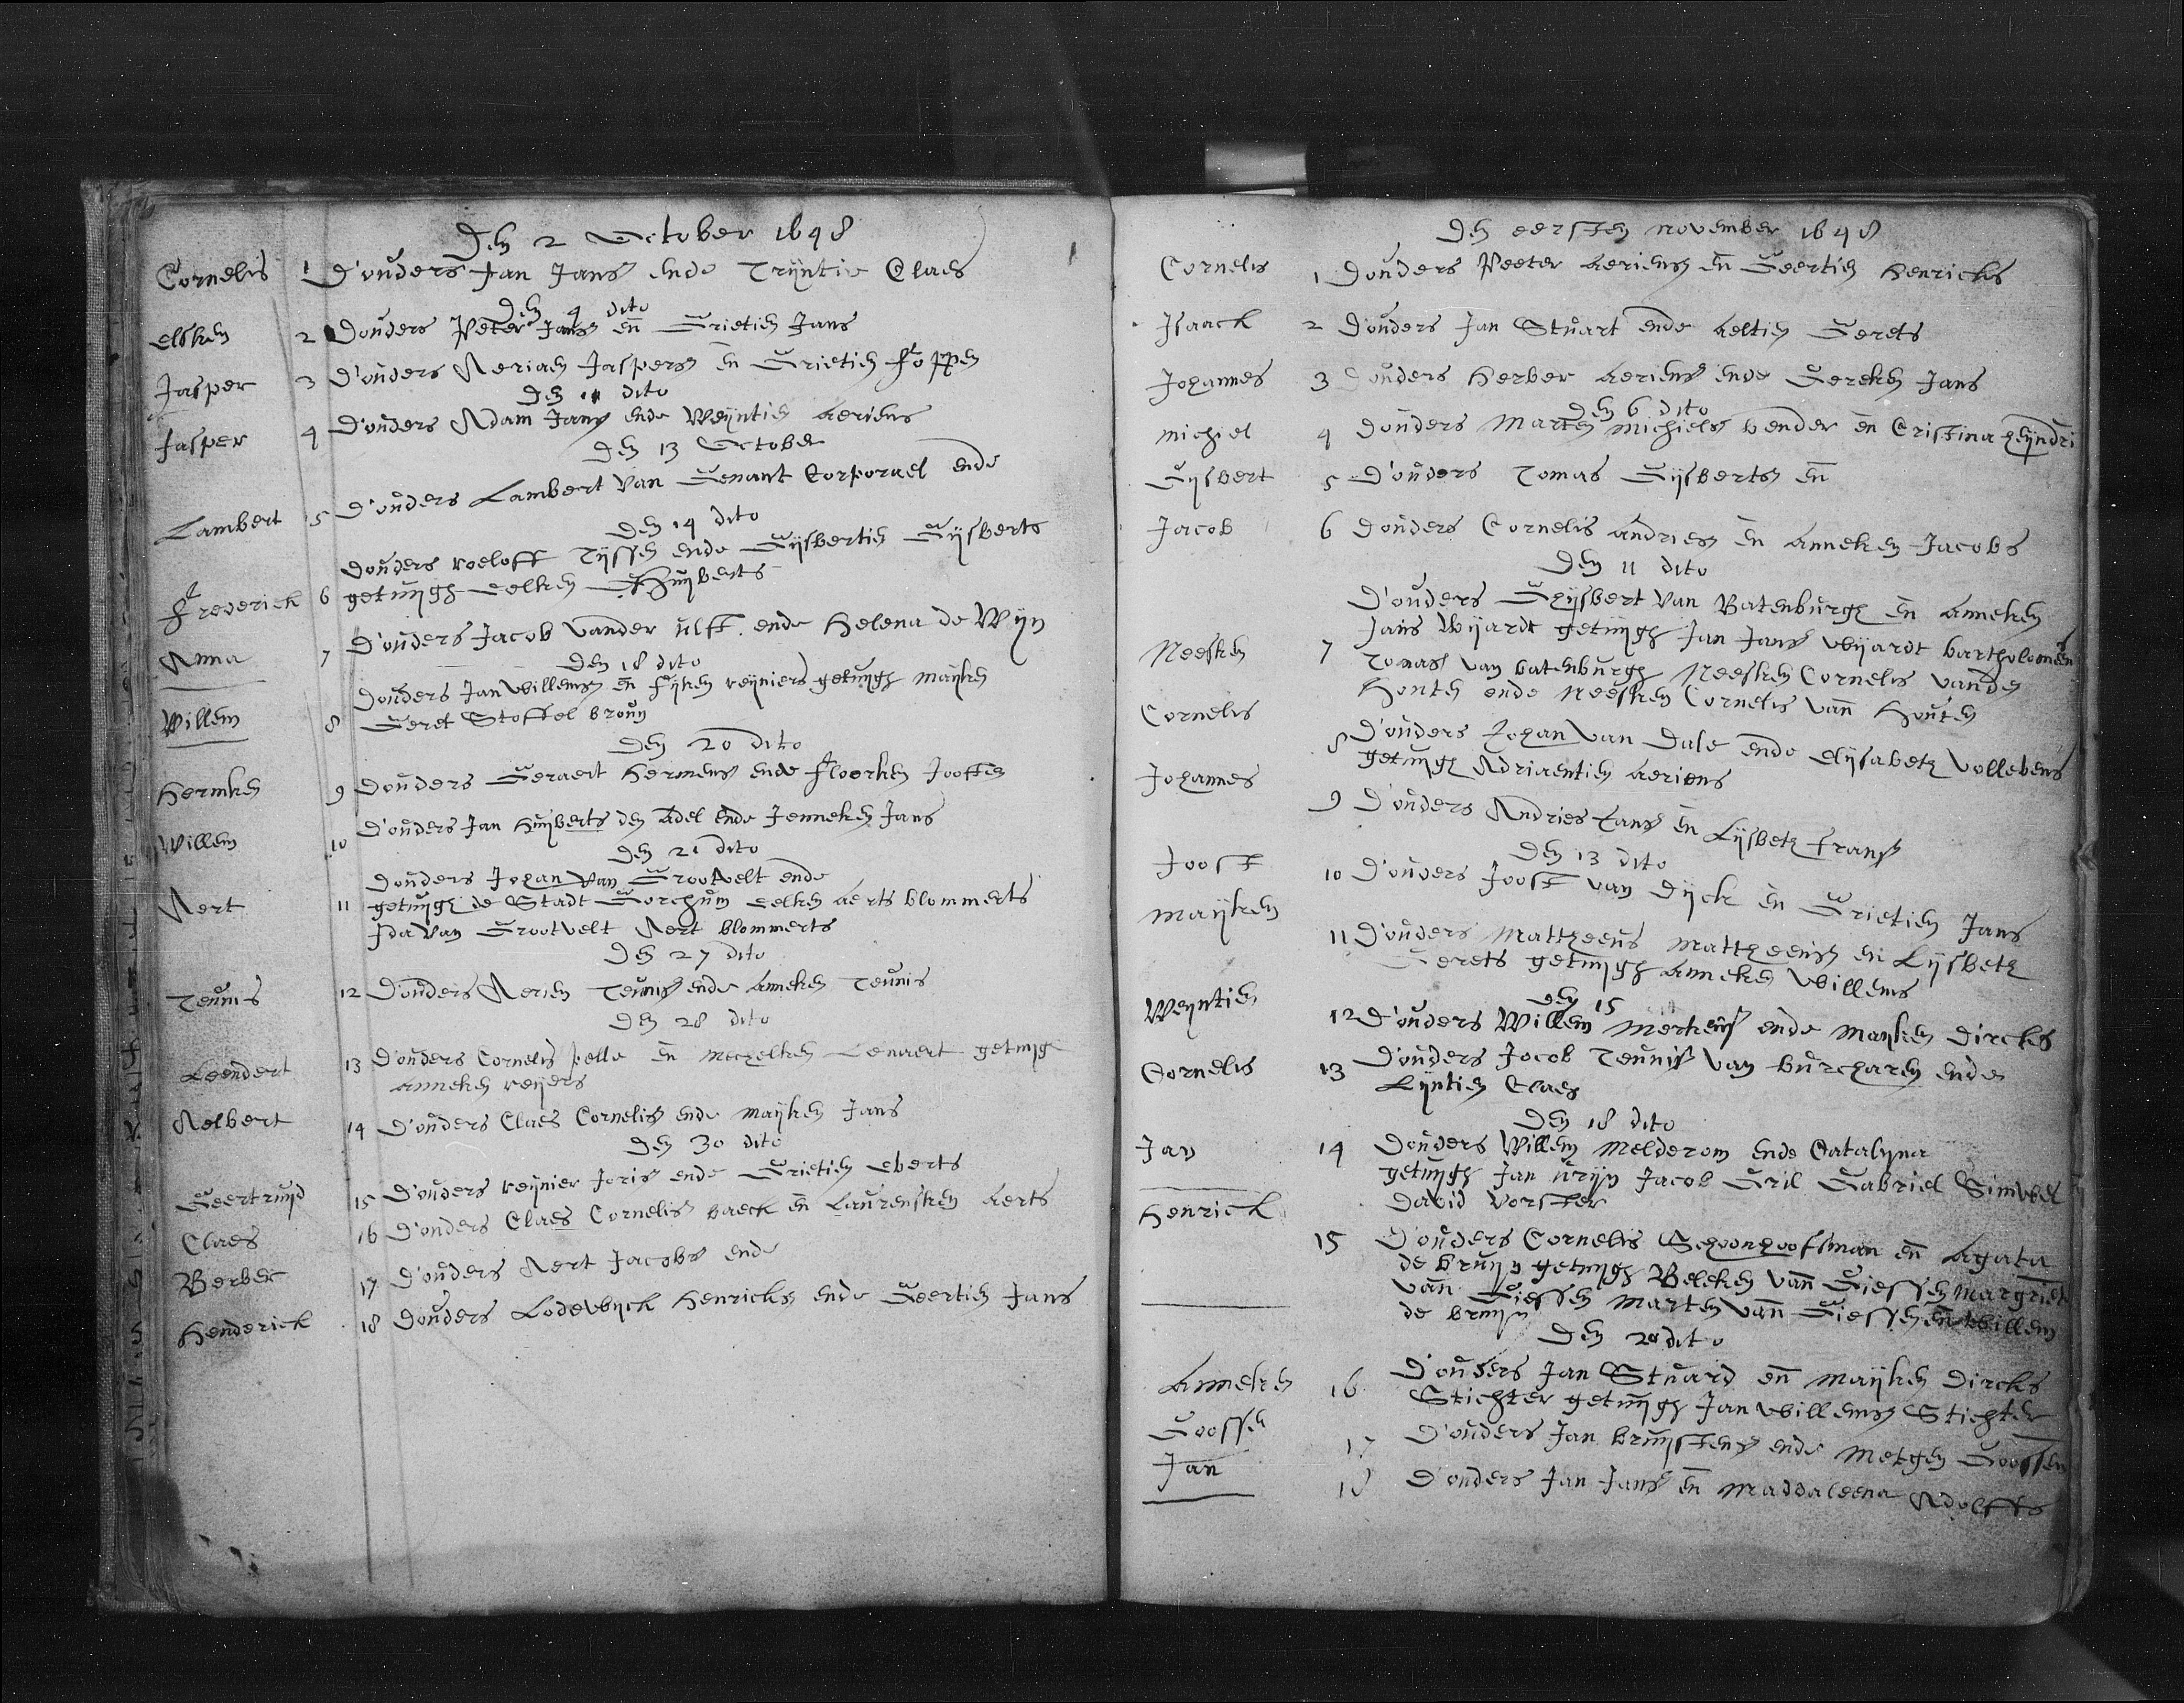 Den 2 October 1648
Cornelis 1 D'ouders Jan Jans ende Trijntie Claes
Den 4 dito
Elsken 2 Douders Peter Jans en Grietien Jans
Jasper 3 D'ouders Aeriaen Jaspers en Grietien Foppen
Den 11 dito
Jasper 4 D'ouders Adam Jans ende Weijntien Aeriens
Den 13 October
Lambert 5 D'ouders Lambert van Genant Corporael ende
Den 14 dito
Douders roeloff Tijssen ende Gijsbertien Gijsberts
Frederick 6 getuijgh eelken Huijberts
Anna 7 D'ouders Jacob vander Ulft ende Helena de Wijn
Den 18 dito
Douders Jan Willems en Fijken reijniers getuijgh maijken
Willem 8 Geret Stoffel broun
Den 20 dito
Hermken 9 Douders Geraert Hermens ende Floorken Joosten
Willem 10 D'ouders Jan Huijberts den Adel ende Jenneken Jans
Den 21 dito
Douders Johan van Grootvelt ende
Aert 11 getuijgh de Stadt Gorchum eelken Aerts blommerts
Ida van Grootvelt Aert blommerts
Den 27 dito
Teunis 12 Douders Aerien Teunis ende Anneken Teunis
Den 28 dito
Leendert 13 D'ouders Cornelis pelle en Mechelken Lenaert getuijgh
Anneken reijers
Aelbert 14 D'ouders Claes Cornelis ende maijken Jans
Den 30 dito
Geertruijd 15 D'ouders reijnier Joris ende Grietien Eberts
Claes 16 D'ouders Claes Cornelis baeck en Laurensken Aerts
Berber 17 D'ouders Aert Jacobs ende
Henderick 18 Douders Lodewijck Henricks ende Geertien Jans
Den eersten november 1648
Cornelis 1 Douders Peeter Aeriens en Geertien Henricks
Isaack 2 D'ouders Jan Stuart ende Aeltien Gerets
Johannes 3 Douders Herber Aeriens ende Gereken Jans
Den 6 dito
Michiel 4 Douders Marten Michiels bender en Cristina heijndri
Gijsbert 5 D'ouders Tomas Gijsberts en
Jacob 6 Douders Cornelis Andries en Anneken Jacobs
Den 11 dito
D'ouders Ghijsbert van Batenburgh en Anneken
Jans Wijardt getuijgh Jan Jans Wijardt bartholomeen
Neesken 7 Tomas van batenburgh Neesken Cornelis vanden
Honten ende Neesken Cornelis vann Houten
Cornelis 8 D'ouders Johan van Dale ende Elijsabeth Vollebens
getuijgh Adriaentien Aeriens
Johannes 9 D'ouders Andries Jans en Lijsbeth Frans
Den 13 dito
Joost 10 D'ouders Joost van Dijck en Grietien Jans
Maijken 11 D'ouders Mattheeus Mattheeus en Lijsbeth
Gerets getuijgh Anneken Willems
den 15
Weijntien 12 D'ouders Willem Merkens ende Maijken Dircks
Cornelis 13 D'ouders Jacob Teunis van burcharen ende
Lijntien Claes
Den 18 dito
Jan 14 Douders Willem Melderom ende Catalyna
getuijgh Jan Urijn Jacob Gril Gabriel
David Vorster
Henrick 15 D'ouders Cornelis Schoonhoofman en Agata
de bruijn getuijgh Beleken vann Giessen Margriet
vann Giessen Marten vann Giessen en Willem
de bruijn
Den 20 dito
Anneken 16 D'ouders Jan Stuard en Maijken Dircks
Stichter getuijgh Jan Willems Stichter
Goossen 17 D'ouders Jan bruijstens ende Metgen Goossen
Jan 18 D'ouders Jan Jans en Maddaleena Adolffs